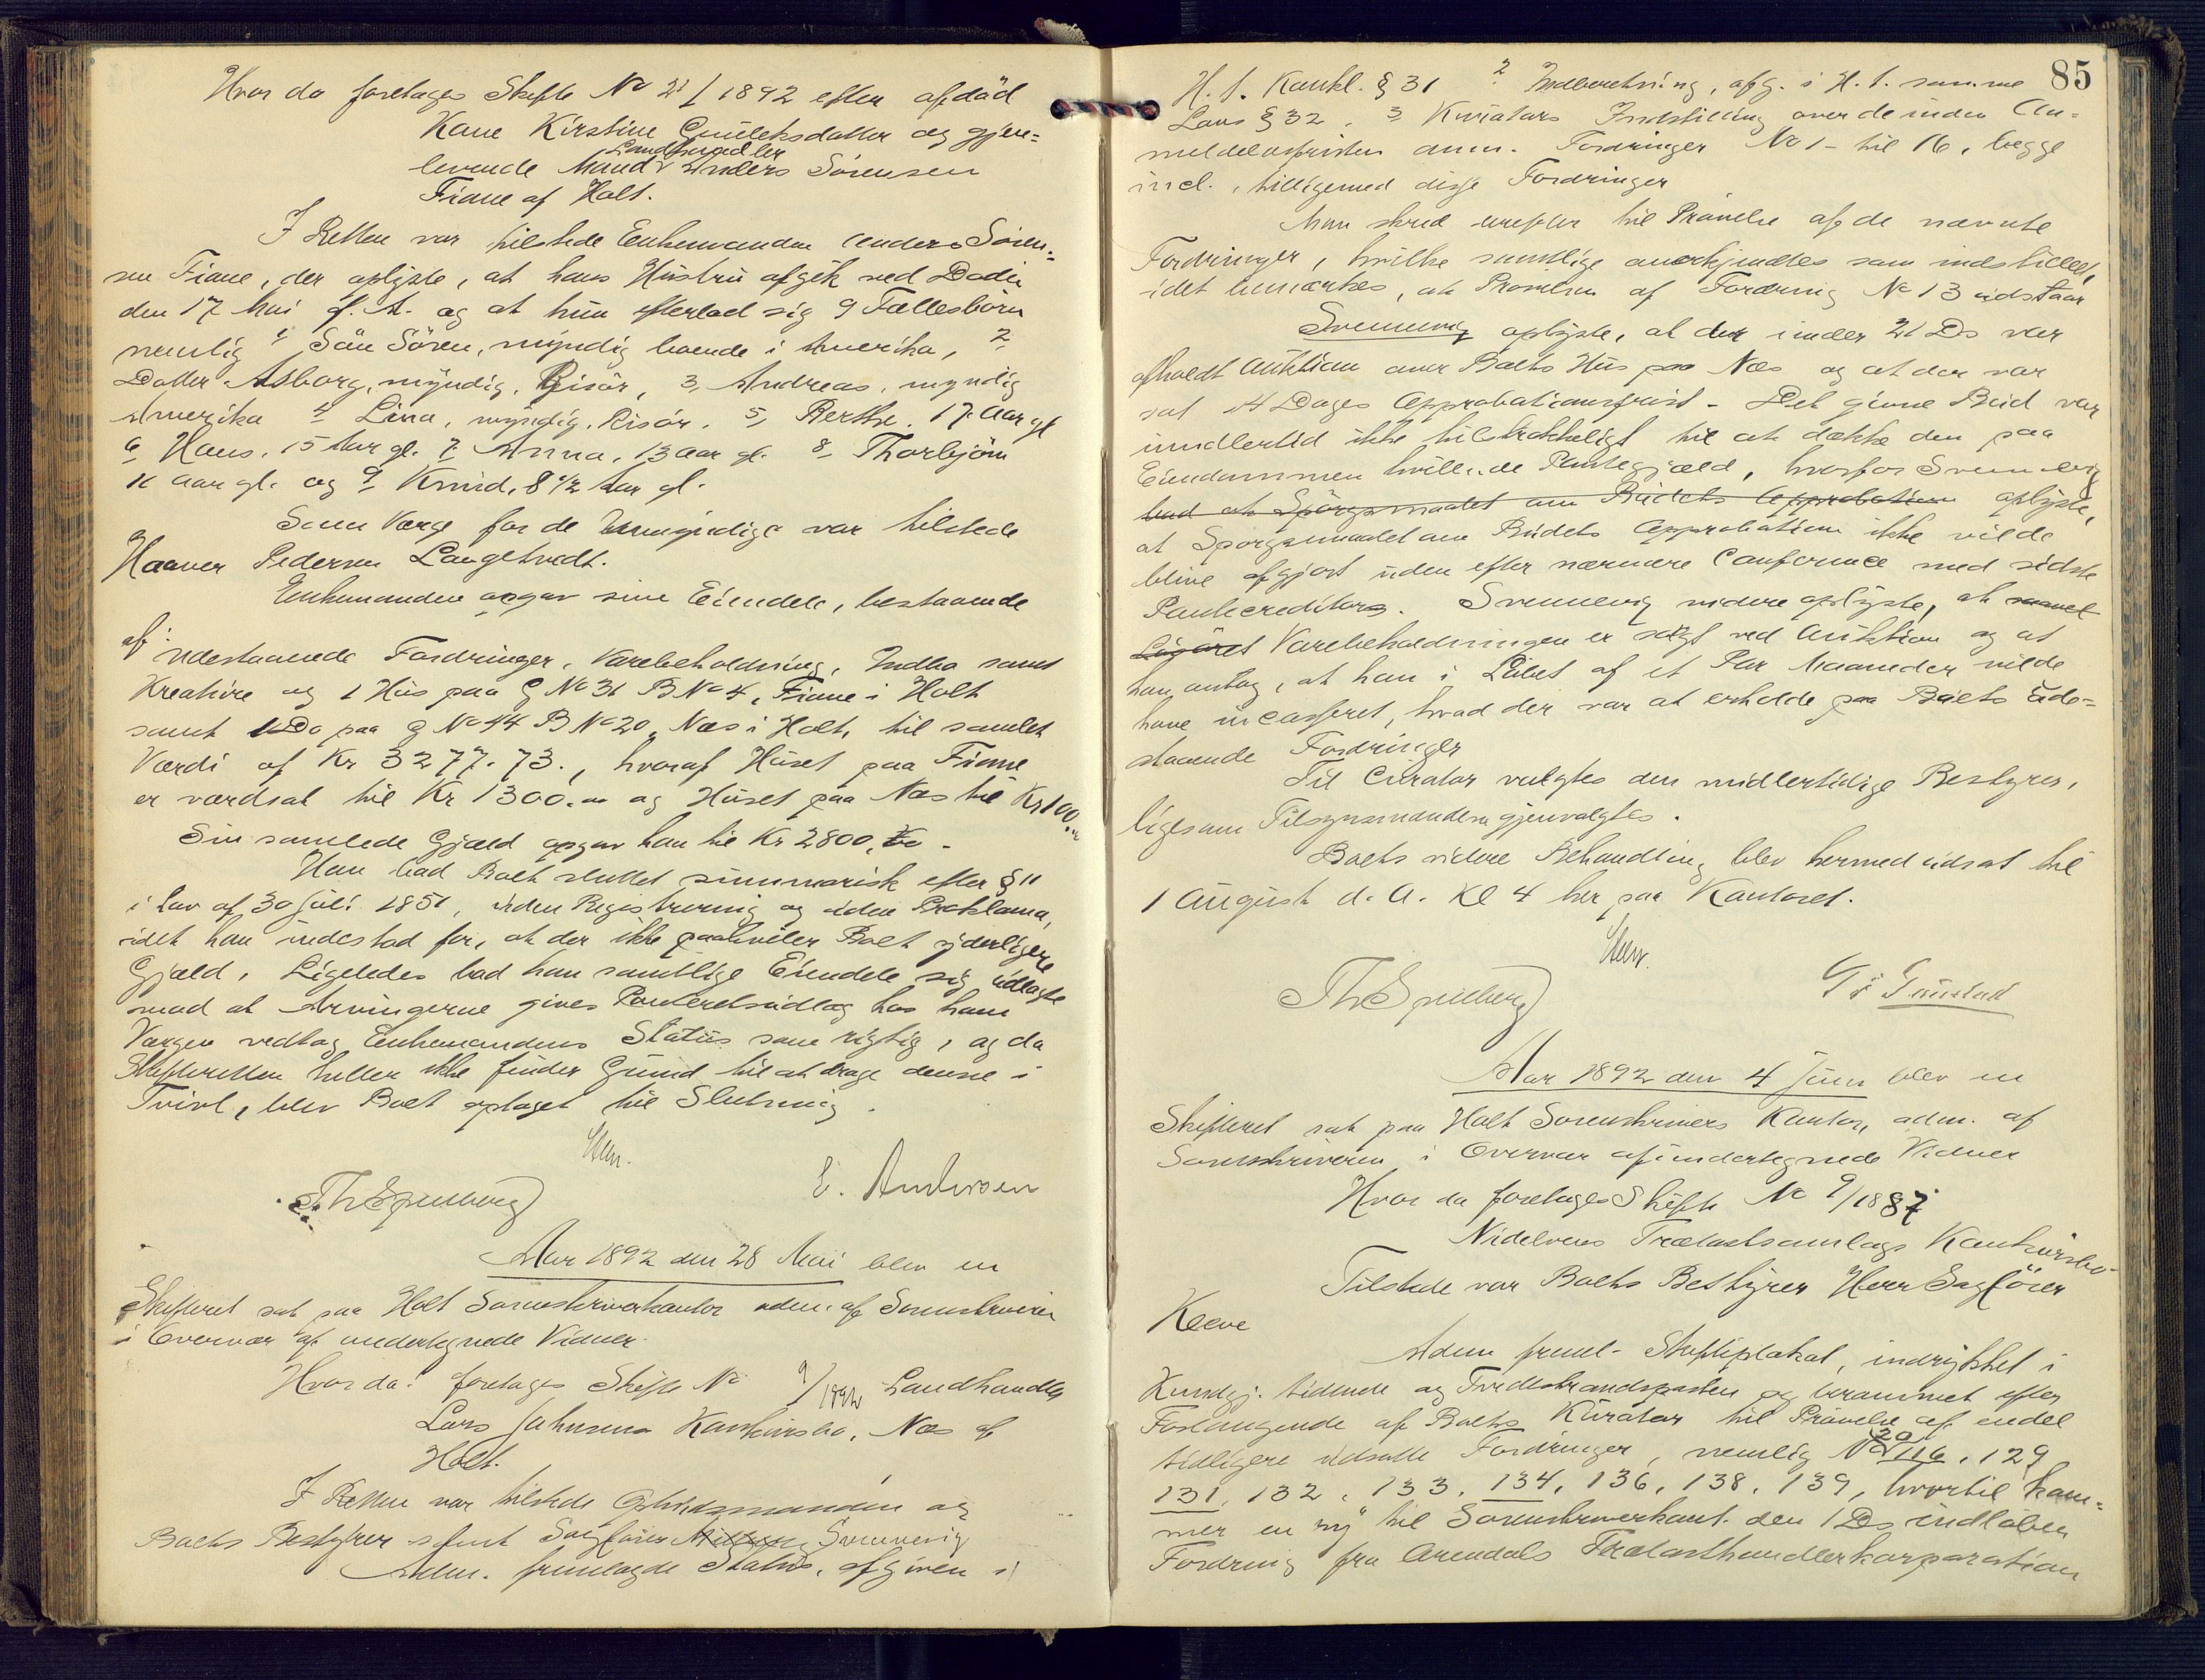 Hvor da foretages Skifte No 21/1892 efter afdöd
Kone Kirstine Gunleksdatter og gjen-
Landhandler
levende Mand Anders Sörensen
Fiane af Holt.
I Retten var tilstede Enkemanden Anders Sören-
sen Fiane, der oplyste, at hans Hustru afgik ved Döden
den 17 Mai d. A. og at hun efterlod sig 9 Fællesbørn
nemlig 1, Sön Sören, myndig boende i Amerika, 2,
Datter Asborg, myndig, Risör, 3, Andreas, myndig
Amerika 4, Lina, myndig, Risör, 5, Berthe, 17 Aar gl
6, Hans, 15 Aar gl. 7, Anna, 13 aar gl. 8, Thorbjörn
11 aar gl. og 9, Knud, 8 1/2 Aar gl.
Som Værge for de Umyndige var tilstede
Haaver Pedersen Langetvedt.
Enkemanden opgav sine Eiendele, bestaaende
af:
udestaaende Fordringer, Varebeholdning, Indbo samt
Kreature og 1 Hus paa G No 31 B No 4, Fiane i Holt
samt 1 Do paa G No 44 B No 20, Næs i Holt, til samlet
Værdi af Kr 3277.73., hvoraf Huset paa Fiane
er værdsat til Kr 1300.00 og Huset paa Næs til Kr 100.00
Sin samlede Gjæld opgav han til Kr 2800,
Han bad Boet sluttet summarisk efter § 11
i Lov af 30 Juli 1851, uden Registrering og uden Proklama,
idet han indestod for, at der ikke paahviler Boet yderligere
Gjæld. Ligeledes bad han samtlige Eiendele sig udlagte
mod at Arvingerne gives Panteretsudlæg hos ham
Værgen vedtog Enkemandens Status som rigtig, og da
Skifteretten heller ikke finder Grund til at drage denne i
Tvivl, blev Boet optaget til Slutning.
E. Andersen
Aar 1892 den 28 Mai blev en
Skifteret sat paa Holt Sorenskriverkontor adm. af Sorenskriveren
i Overvær af undertegnede Vidner.
Hvor da: foretages Skifte No 9/1892 Landhandler
Lars Johnsens Konkursbo, Næs af
Holt.
I Retten var tilstede Tilsynsmanden og
Boets Bestyrer samt Sagförer Svennevig
Adm. fremlagde Status, afgiven i
85
H. t. Konkl. § 31 2 Indberetning, afg. i H. t. samme
Lovs § 32. 3 Kurators Indstilling over de inden An-
meldelsesfristen anm. Fordringer No 1 til 16, begge
incl., tilligemed disse Fordringer
Man skred derefter til Prövelse af de nævnte
Fordringer, hvilke samtlige anerkjendtes som indstillet,
idet bemærkes, at Prövelsen af Fordring No 13 udstaar
Svennevig oplyste, at der under 21 Ds var
afholdt Auktion over Boets Hus paa Næs og at der var
sat 14 Dages Approbationsfrist. Det givne Bud var
imidlertid ikke tilstrækkeligt til at dække den paa
Eiendommen hvilende Pantegjæld, hvorfor Svennevig
bad at Spörgsmaalet om Budets Approbation oplyste,
at Spörgsmaalet om Budets Approbation ikke vilde
blive afgjort uden efter nærmere Conference med sidste
Pantecreditor. Svennevig videre oplyste, at
Varebeholdningen er solgt ved Auktion og at
han antog, at han i Löbet af et Par Maaneder vilde
have incasseret, hvad der var at erholde paa Boets ude-
staaende Fordringer
Til Curator valgtes den midlertidige Bestyrer,
ligesom Tilsynsmanden gjenvalgtes.
Boets videre Behandling blev hermed udsat til
1 August d. A. Kl 4 her paa Kontoret.
Aar 1892 den 4 Juni blev en
Skifteret sat paa Holt Sorenskrivers Kontor, adm. af
Sorenskriveren i Overvær af undertegnede Vidner
Hvor da foretages Skifte No 9/1887
Nidelvens Trælastsamlags Konkursbo
Tilstede var Boets Bestyrer Herr Sagförer
Keeve
Adm freml. Skifteplakat, indrykket i
Kundgj. tidende og Tvedestrandsposten og berammet efter
Forlangende af Boets Kurator til Prövelse af endel
tidligere udsatte Fordringer, nemlig No 20, 116, 129
131, 132, 133, 134, 136, 138, 139, hvortil kom-
mer en ny til Sorenskriverkont. den 1 Ds indloben
Fordring fra Arendals Trælasthandlerkorporation